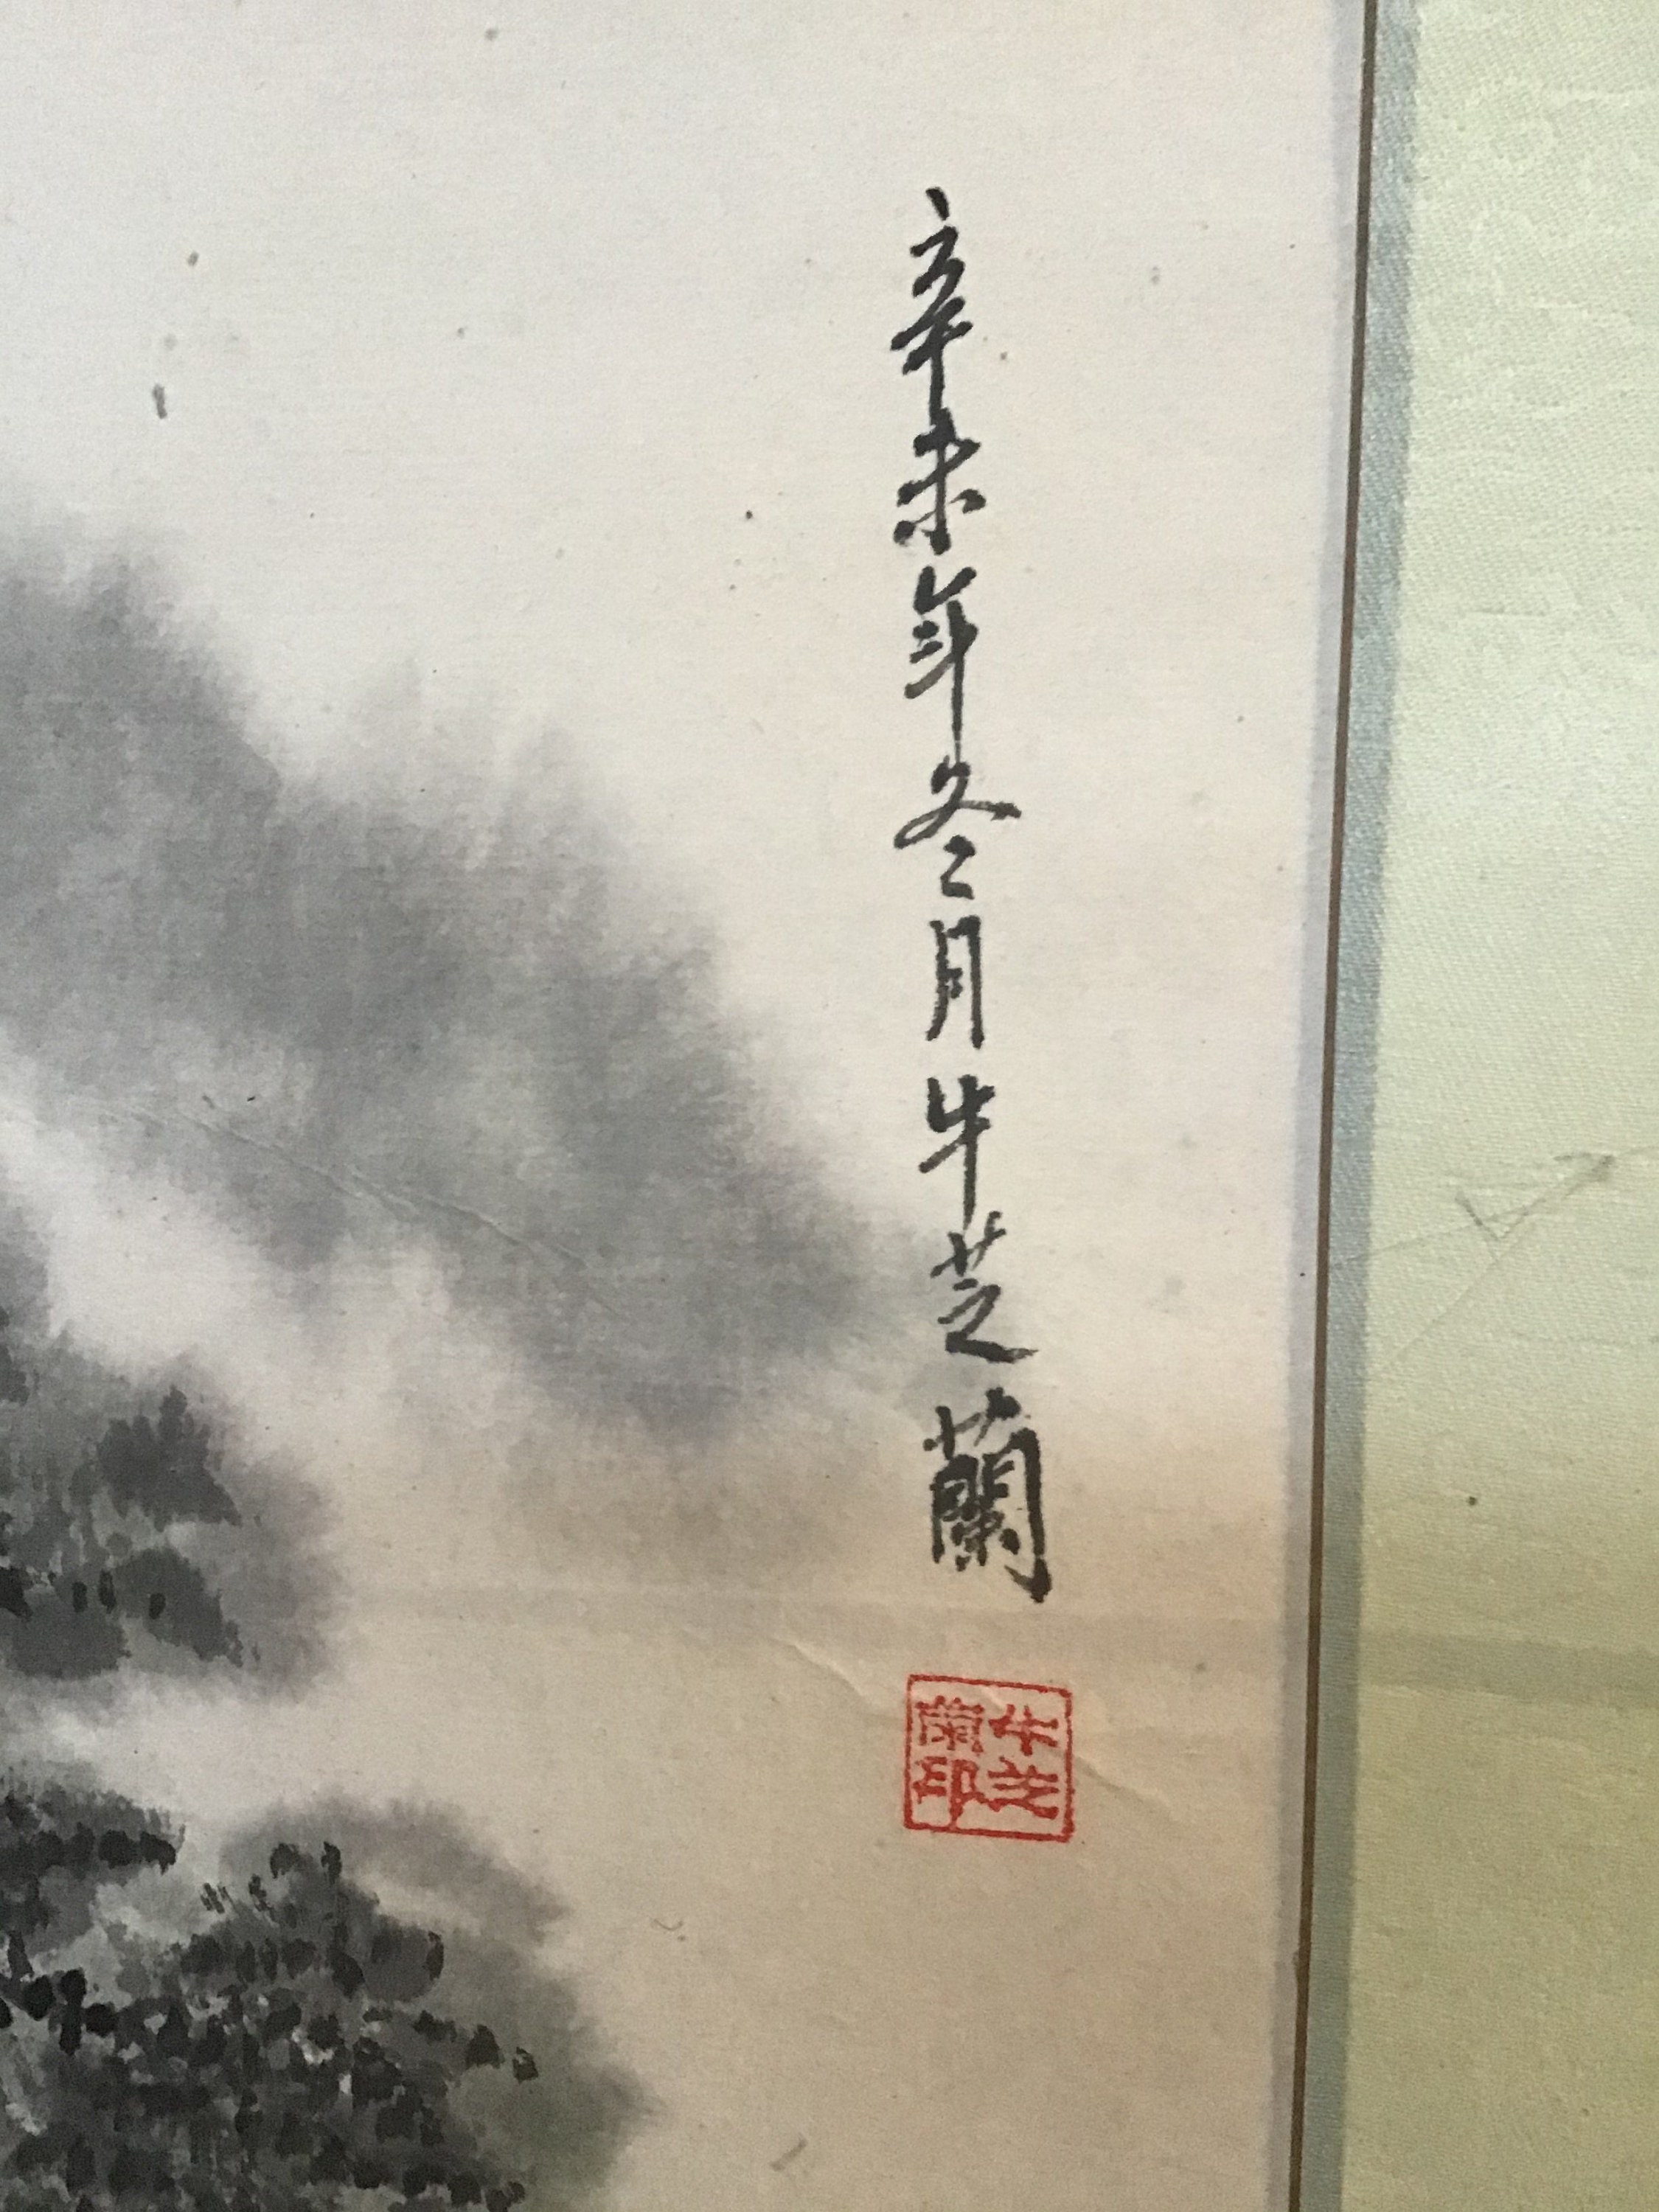 辛未年冬月牛芝蘭
牛芝
蘭印